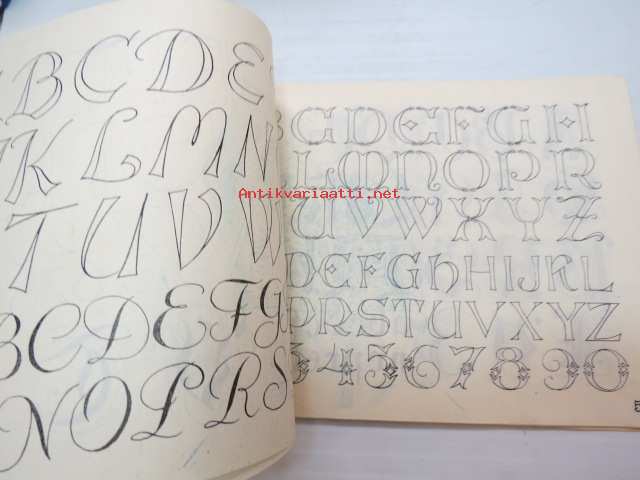 B C D E
K L M N
T U V W
B C D E F G
N O P R S
B C D E F G H I
L M N O P R
U V W X Y Z
D E F G h H I J K L
P R S T U V X Y Z
3 4 5 6 7 8 9 0
Antikvariaatti.net